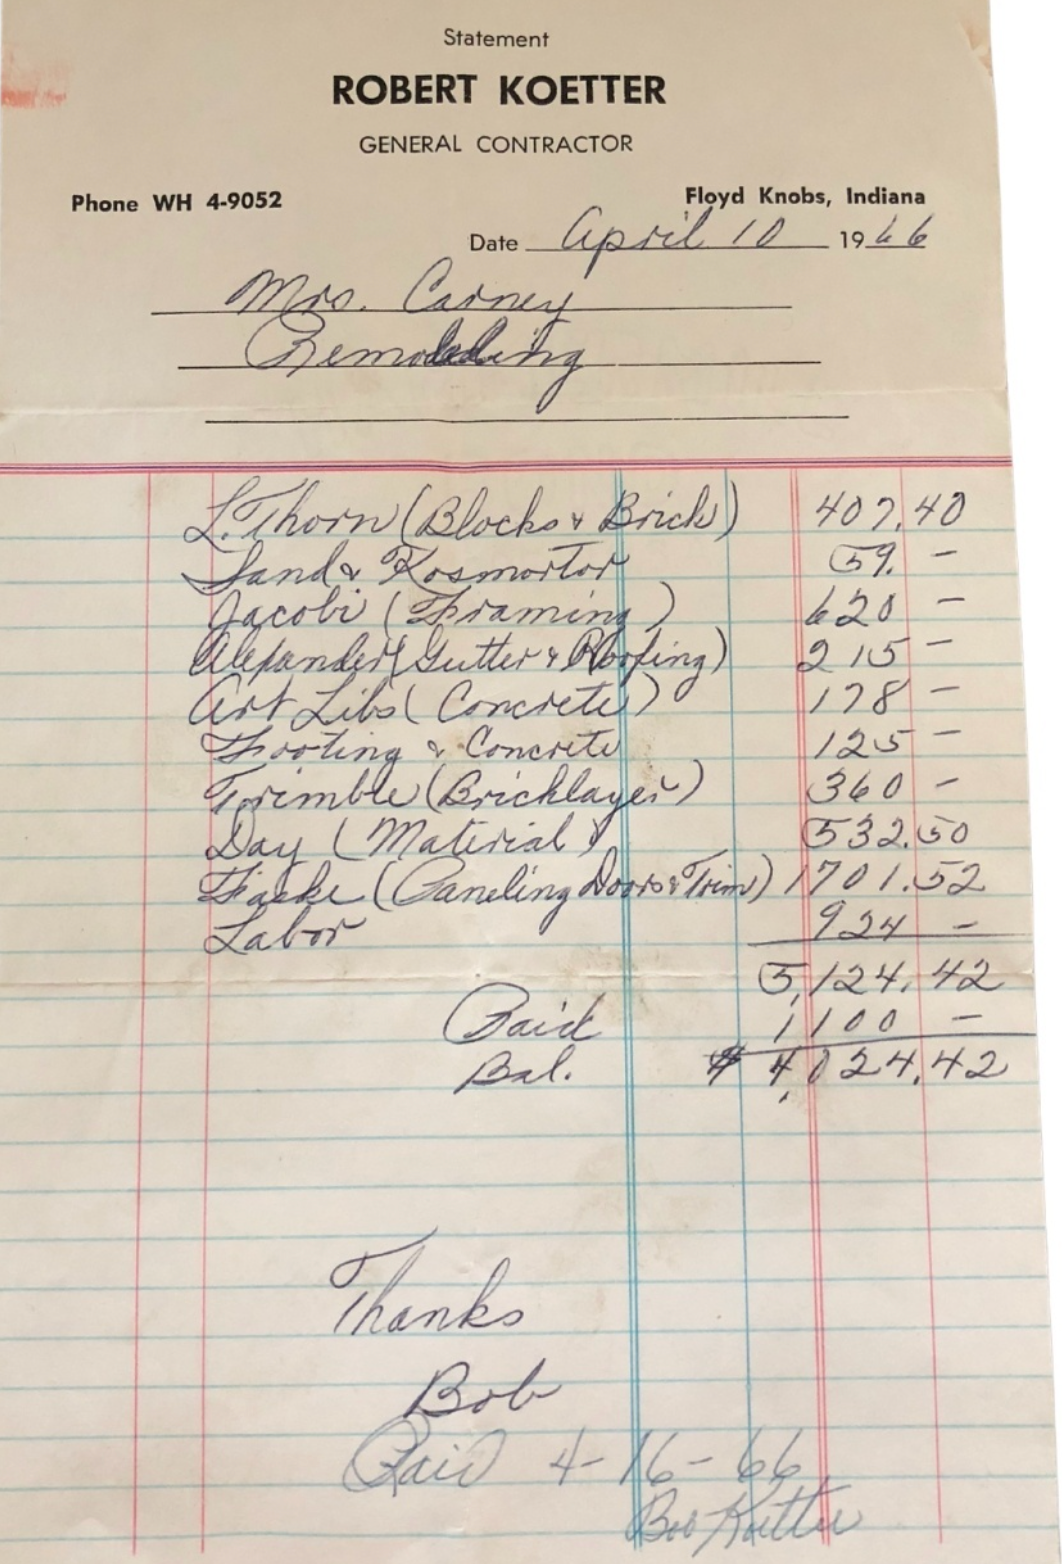 Statement
ROBERT KOETTER
GENERAL CONTRACTOR
Phone WH 4-9052 Floyd Knobs, Indiana
Date April 10 1966
Mrs. Carney
Remodeling
L. Thorn (Blocks & Brick) 407.40
Sand & Kosmortor 59. –
Jacobi (Framing) 620 –
Alexander (Gutter & Roofing) 215 –
Art Libs (Concrete) 178 –
Footing & Concrete 125 –
Trimble (Bricklayer) 360 –
Day (Material) 532.50
(Paneling Doors & Trim) 1701.52
Labor 924 –
5,124.42
Paid 1,100 –
Bal. $ 4,024.42
Thanks
Bob
Paid 4-16-66
Bob Koetter